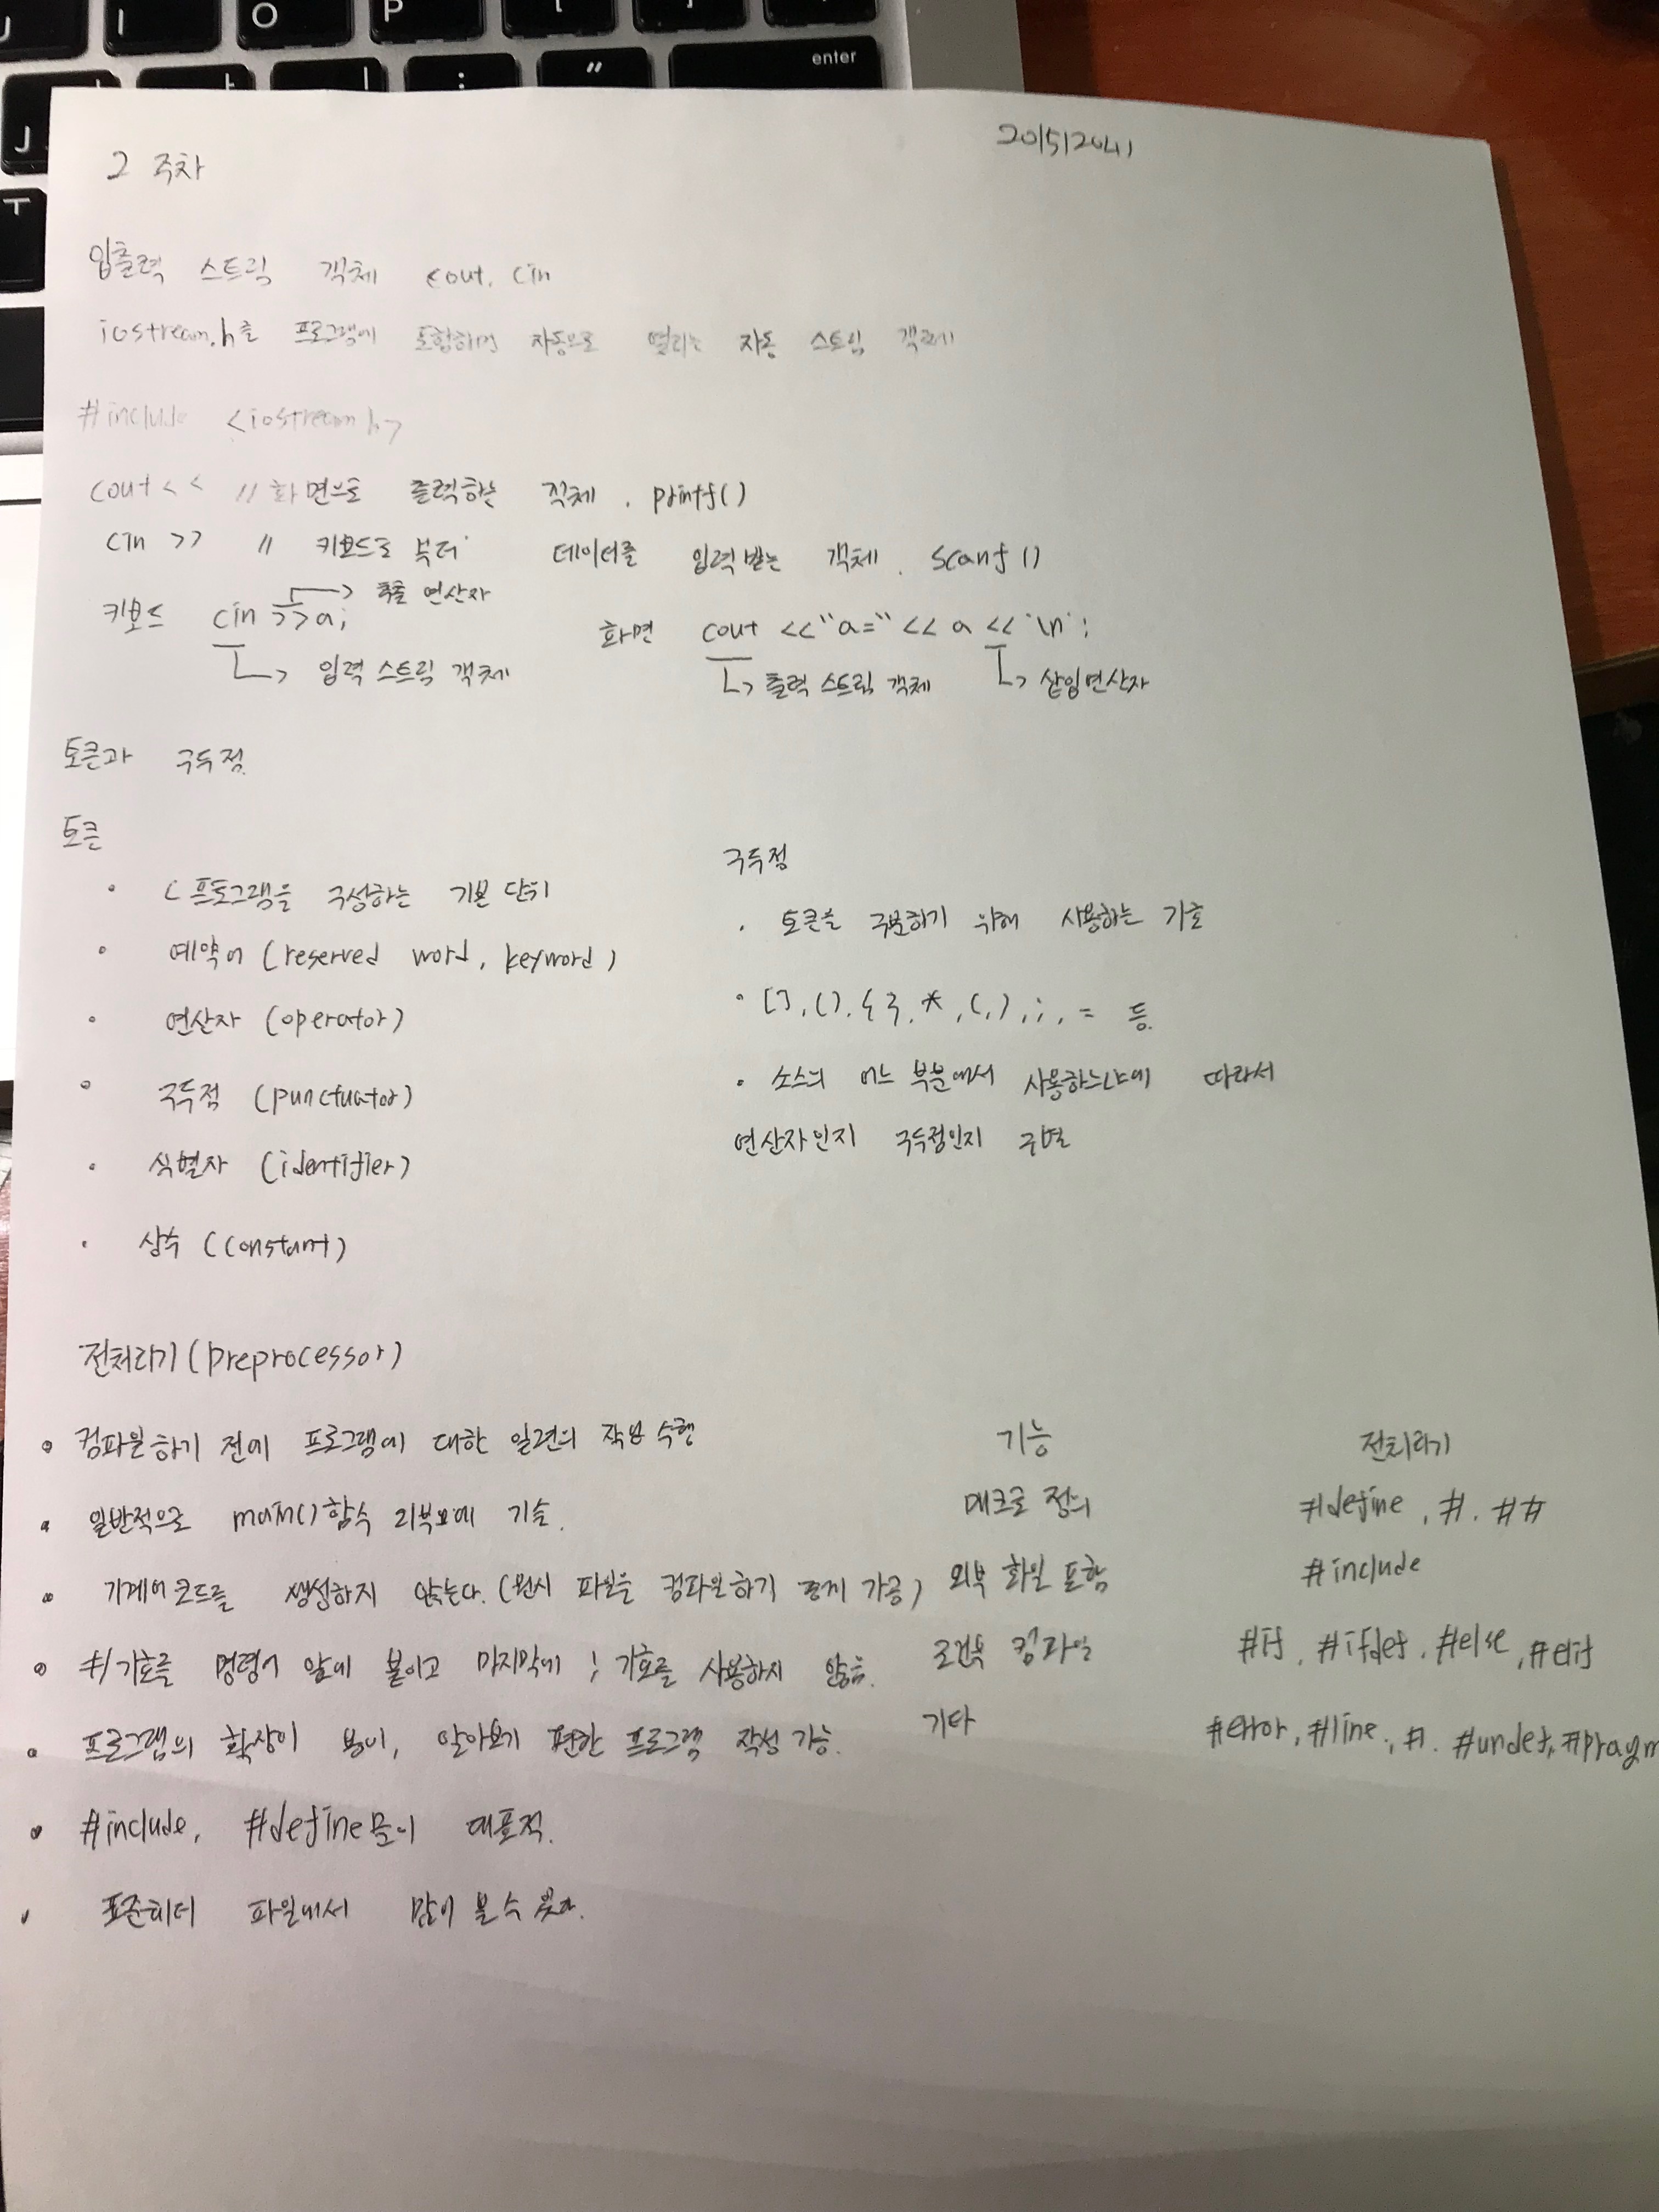 O
P
[
enter
J
ㅓ
ㅏ
ㅣ
;
"
ㅜ
2 주차
201512041
입출력 스트림 객체 cout, cin
iostream.h를 프로그램에 포함하면 자동으로 열리는 자동 스트림 객체
#include <iostream.h>
cout << // 화면으로 출력하는 객체. printf()
cin >> // 키보드로 부터 데이터를 입력받는 객체. scanf()
추출 연산자
키보드 cin >> a;
화면 cout <<"a=" << a << '\n';
입력 스트림 객체
출력 스트림 객체
삽입연산자
토큰과 구두점
토큰
• C 프로그램을 구성하는 기본 단위
• 예약어 (reserved word, keyword)
• 연산자 (operator)
• 구두점 (punctuator)
• 식별자 (identifier)
• 상수 (constant)
구두점
• 토큰을 구분하기 위해 사용하는 기호
• [], (), { }, *, (,), ;, = 등
• 소스의 어느 부분에서 사용하느냐에 따라서
연산자인지 구두점인지 구별
전처리기 (preprocessor)
• 컴파일하기 전에 프로그램에 대한 일련의 작업 수행
• 일반적으로 main() 함수 외부에 기술.
• 기계어 코드를 생성하지 않는다. (원시 파일을 컴파일하기 좋게 가공)
• # 기호를 명령어 앞에 붙이고 마지막에 ; 기호를 사용하지 않음.
• 프로그램의 확장이 용이, 알아보기 편한 프로그램 작성 가능.
• #include, #define 대표적.
• 표준헤더 파일에서 많이 볼 수 있다.
기능 전처리기
매크로 정의 #define, #, ##
외부 화일 포함 #include
조건부 컴파일 #if, #ifdef, #else, #elif
기타 #error, #line, #, #undef, #pragm